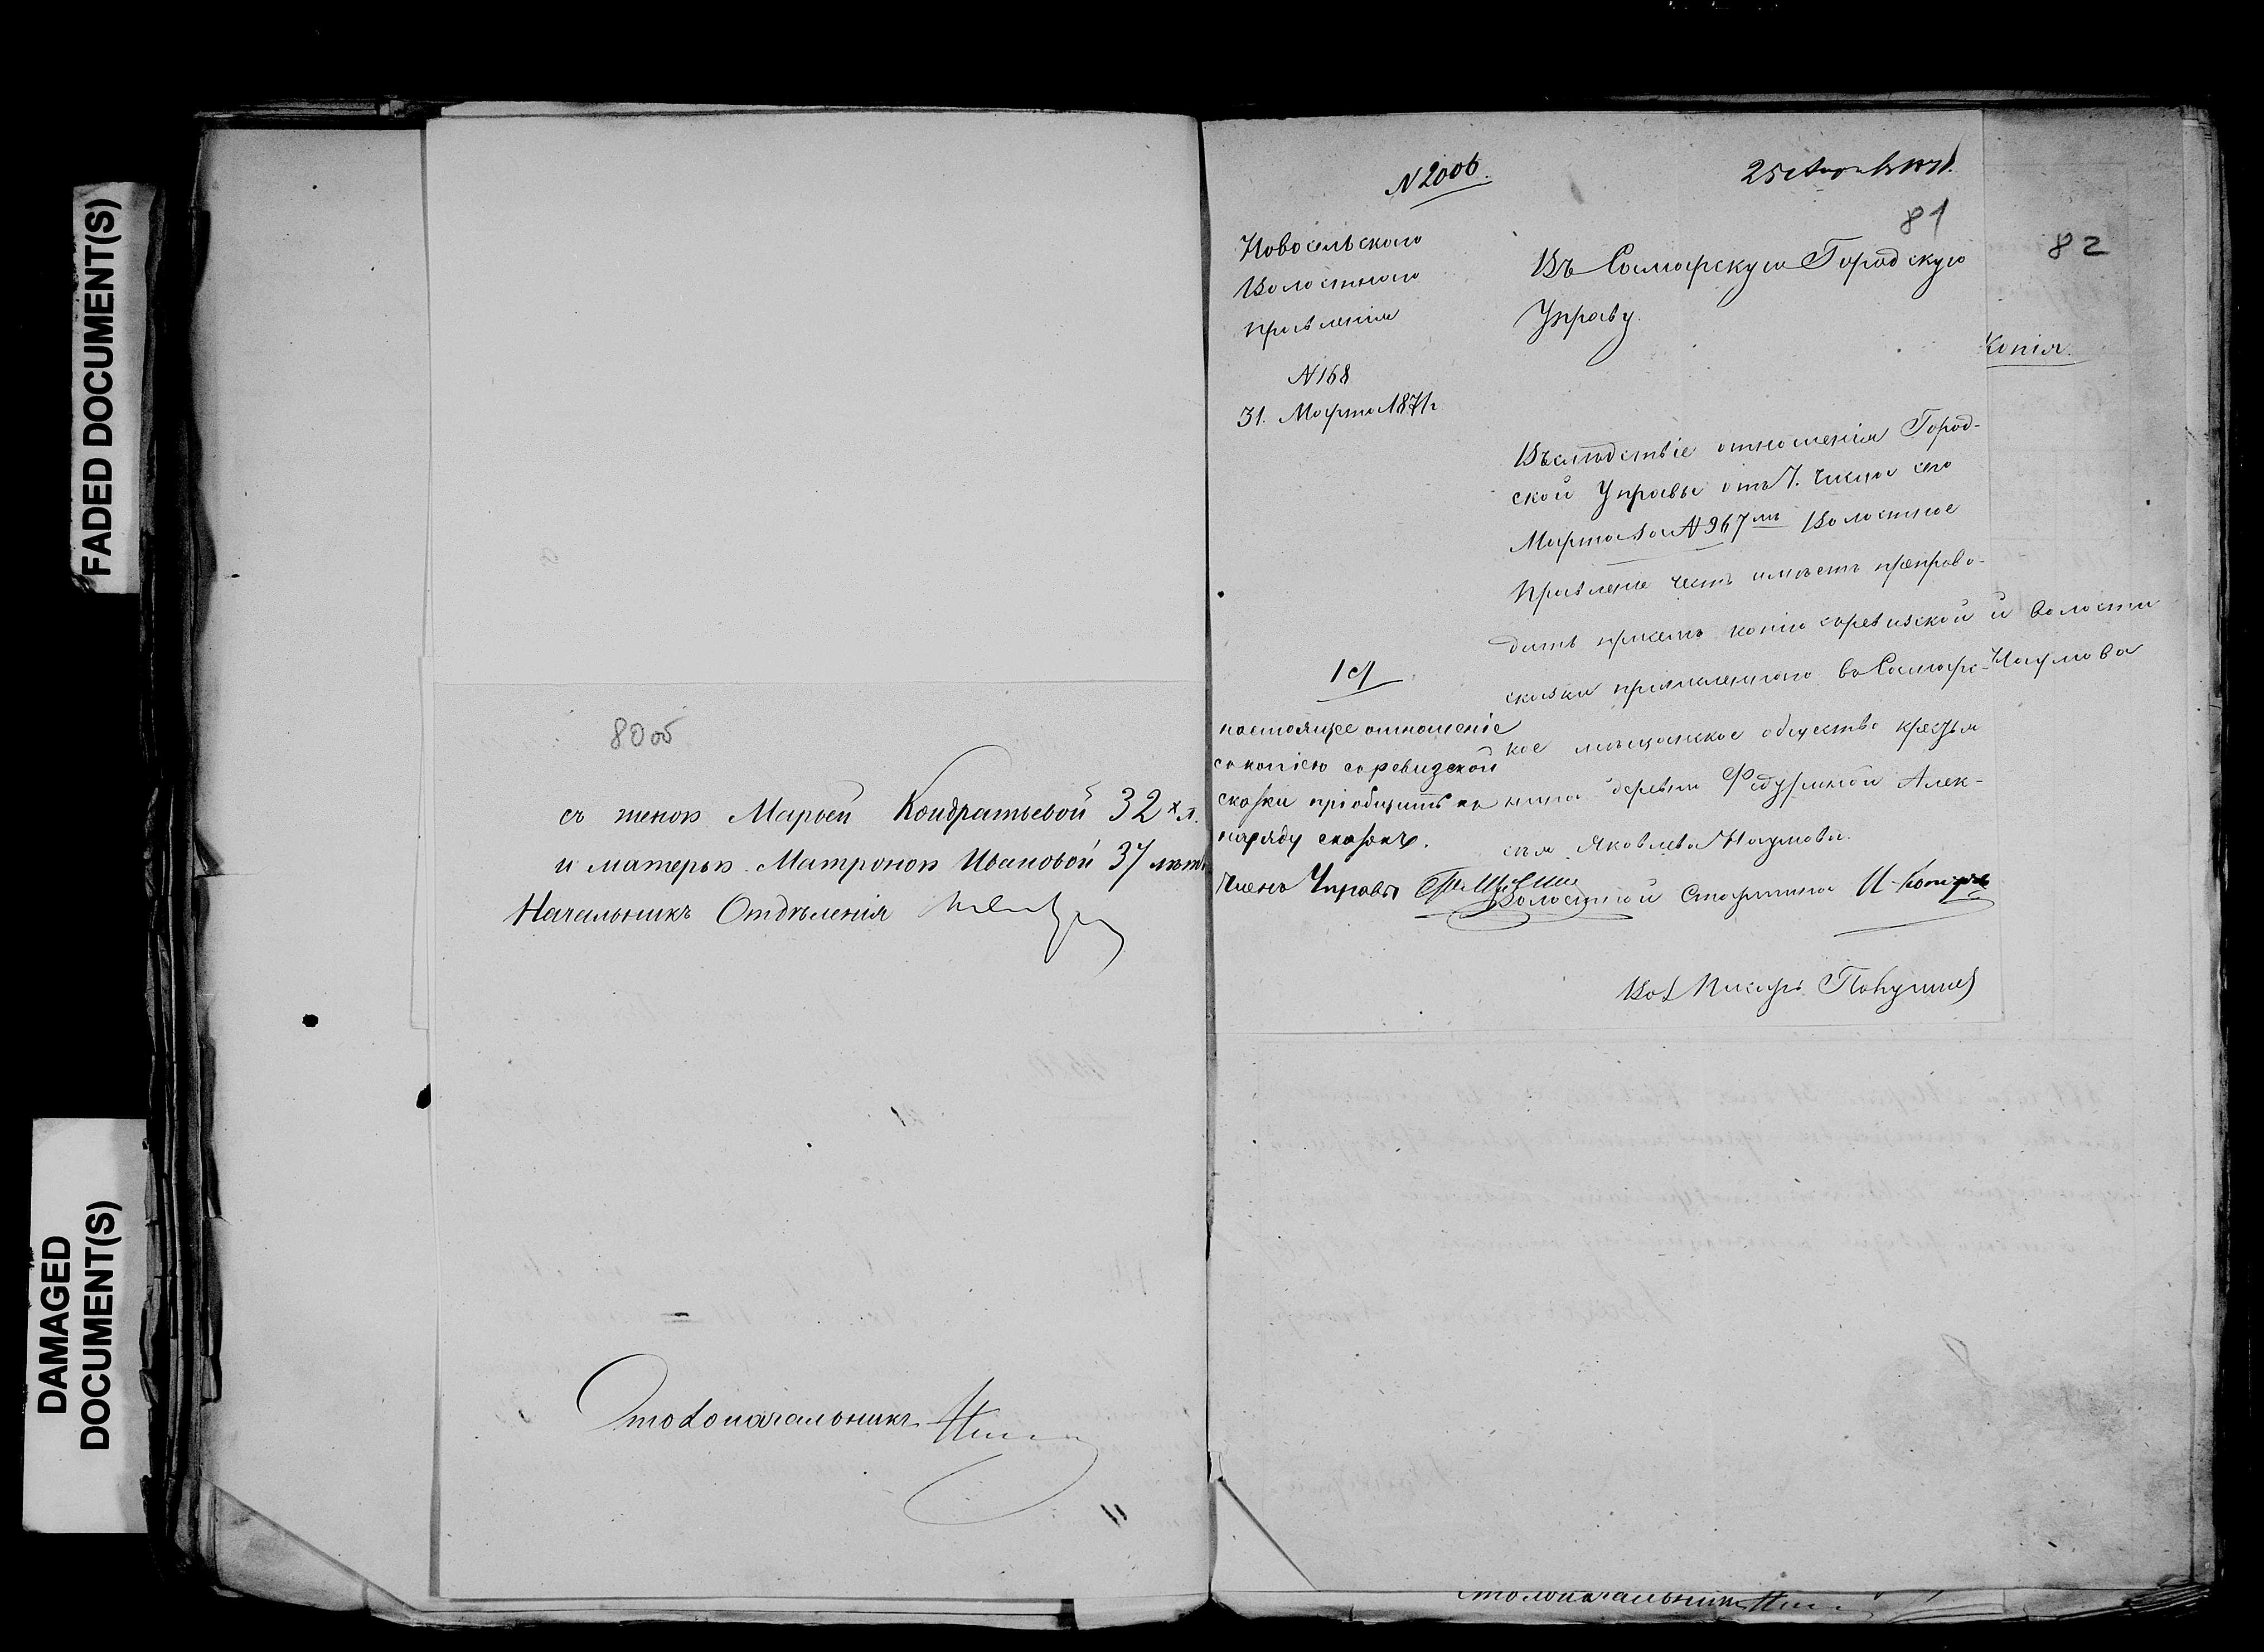 FADED DOCUMENT(S)
DAMAGED
DOCUMENT(S)
80 об
съ женою Марьей Кондратьевой 32 х л.
и матерью Матроною Ивановой 37 лѣтъ
Начальникъ Отдѣленія
Столоначальникъ
N 2006.
25 Апрѣля 1871.
81
Новосельского
Волостного
Правленія
N 168
31. Марта 1871 г
Въ Самарскую Городскую
Управу.
Въслѣдствіе отношенія Город-
ской Управы отъ 7. числа сего
Марта за N 967 мъ Волостное
Правленіе честь имѣетъ препрово-
дить присемъ копію съревизской
сказки причисленного въ Самарс-
кое мѣщанское общество крестья
нина деревни Федуркиной Алек-
сѣя Яковлева Наумова.
Волостной Старшина
Вол Писарь
1 Ст
настоящее отношеніе
съ копіею съ ревизской
сказки пріобщить къ
наряду сказокъ.
Членъ Управы
82
Копія.
й волости
Наумова
Столоначальникъ